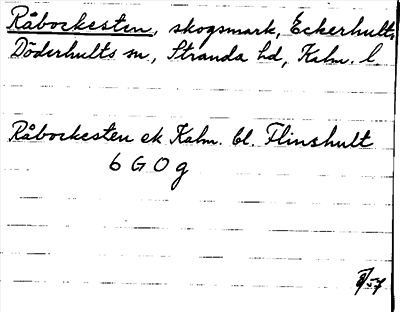 Råbockesten, skogsmark, Eckerhults,
Döderhults sn, Stranda hd, Kalm. l
Råbockesten ek Kalm. bl. Flinshult
6 G O g